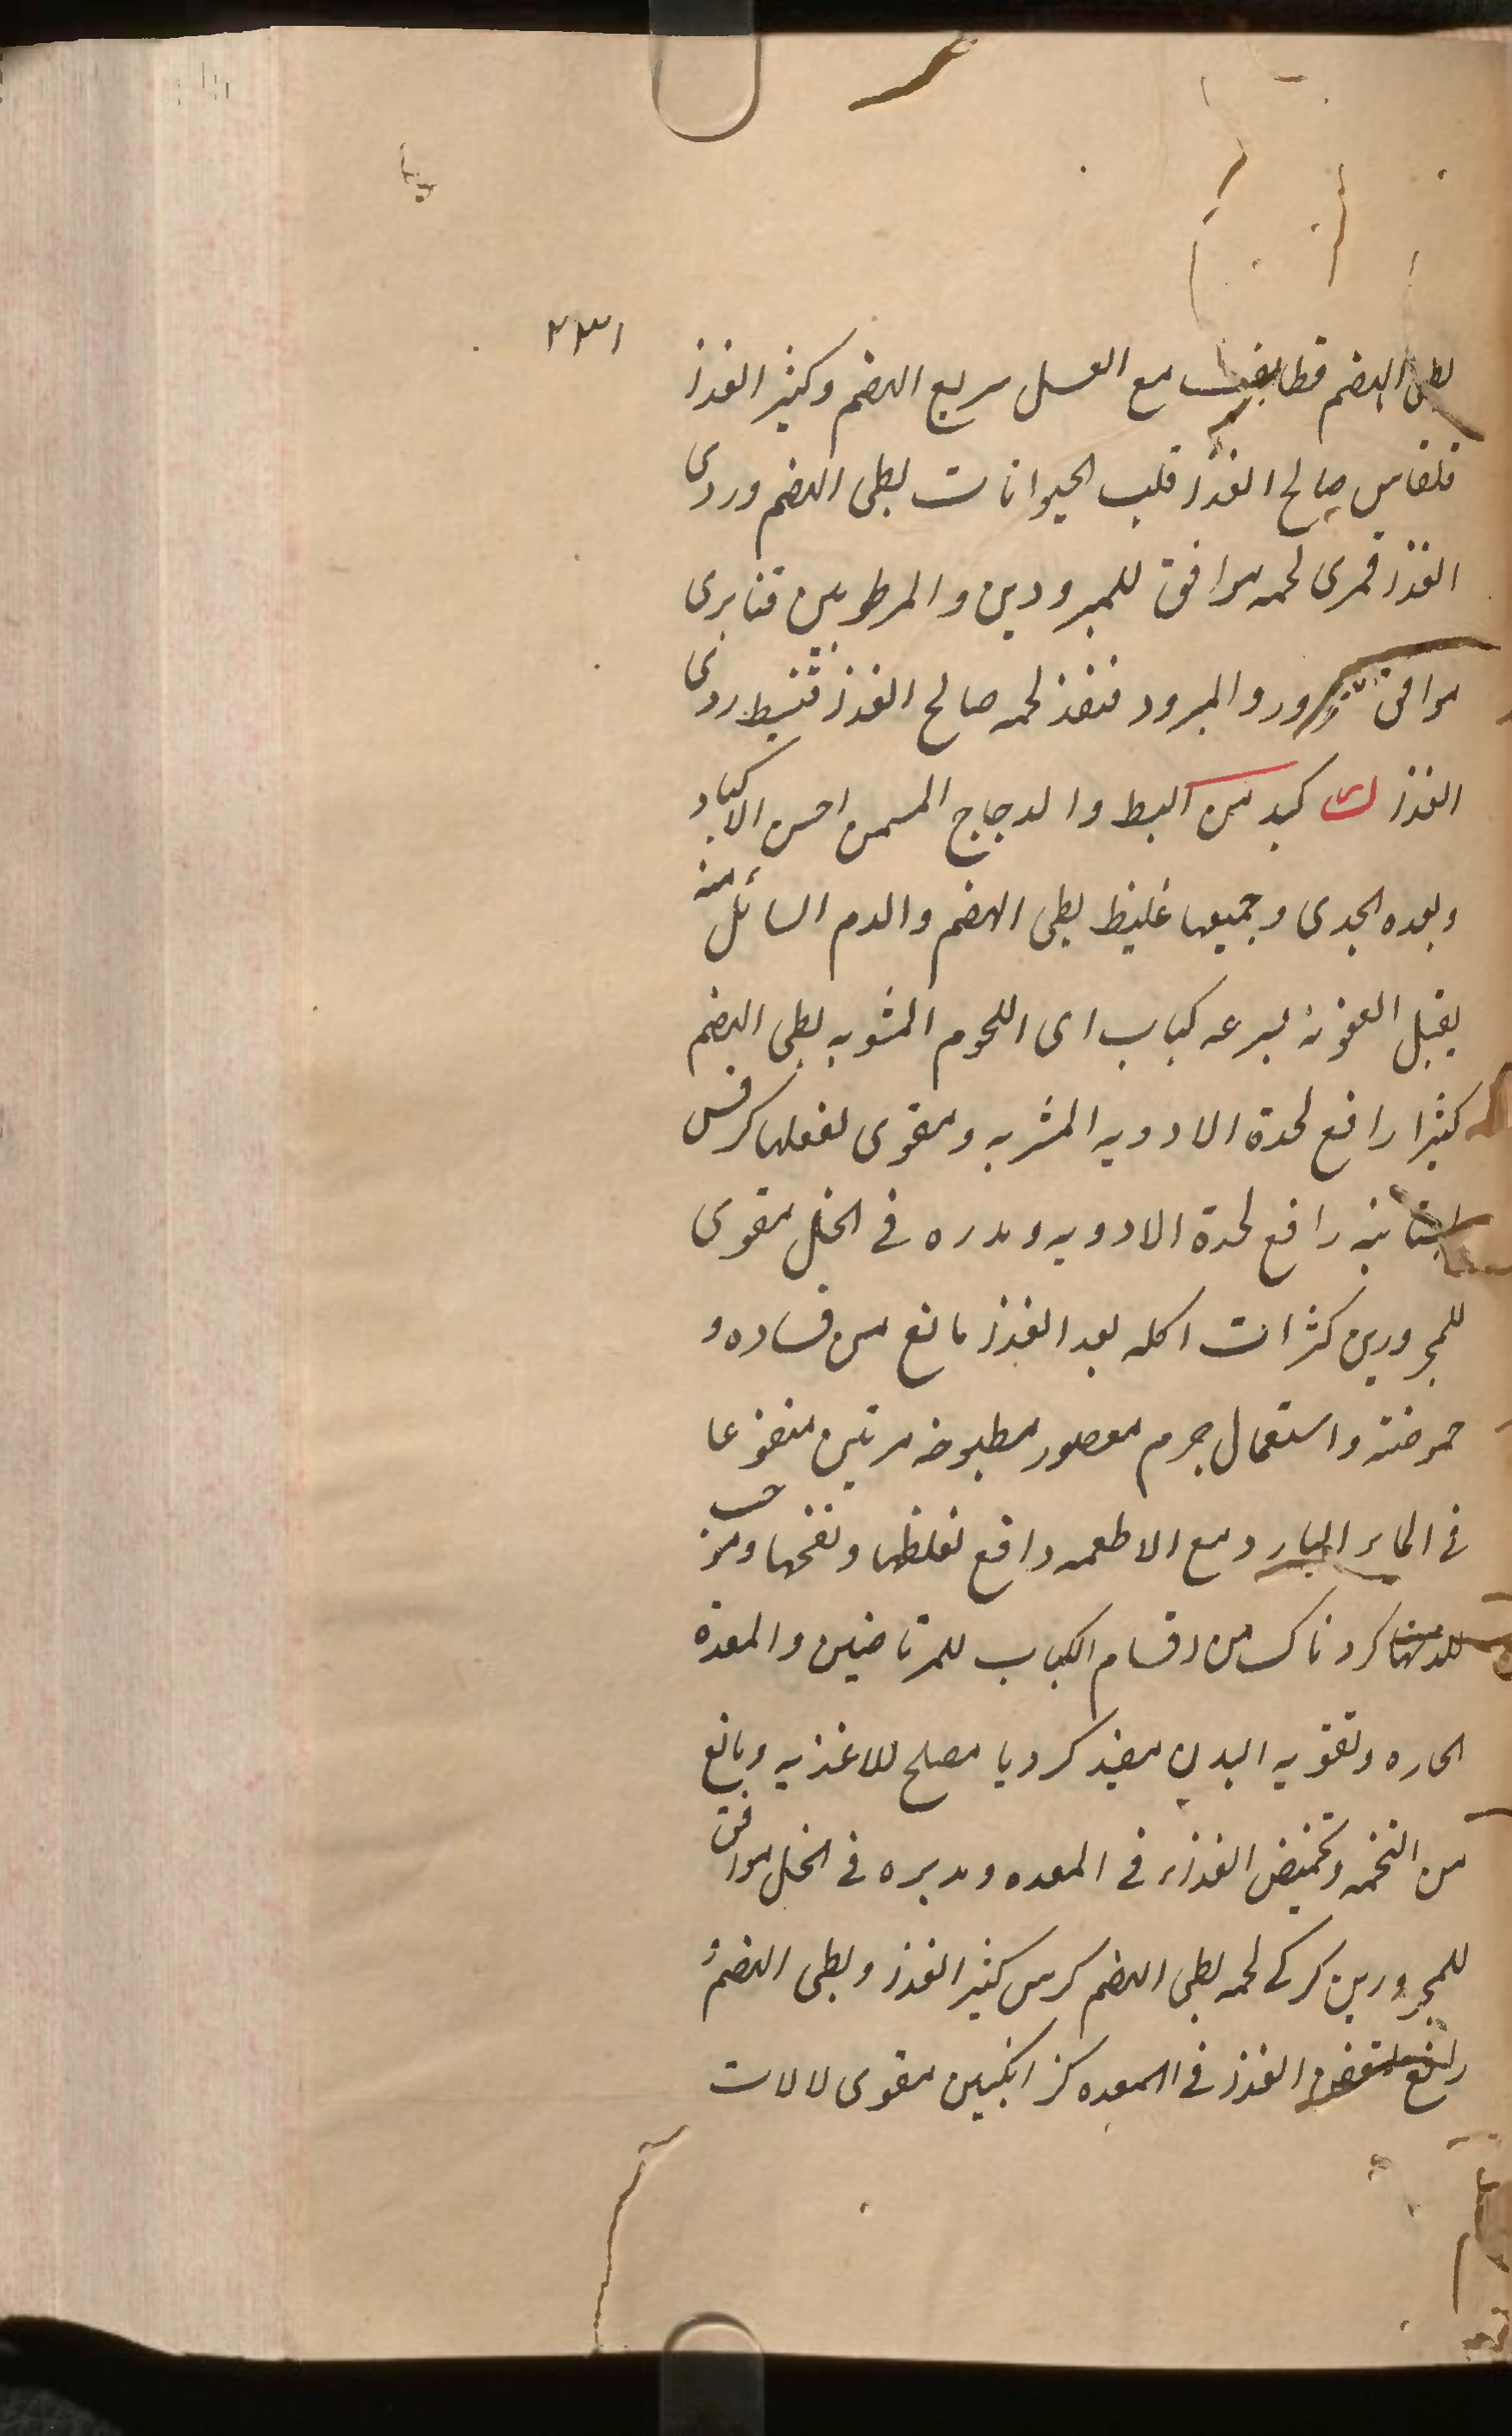 ٢٣١
بطی الهضم قطایف مع العسل سریع الهضم وکثیر الغذا
قلقاس صالح الغذا قلب الحیوانات بطی الهضم وردی
الغذا قمری لحمه موافق للمبرودین والمرطوبین قنابری
موافق والمبرود قنفذ لحمه صالح الغذا قنبیط ردی
الغذا ک کبد من البط والدجاج المسمن احسن الاکباد
وبعده الجدی وجمیعها غلیظ بطی الهضم والدم السائل منه
یقبل العفونة بسرعه کباب ای اللحوم المشویه بطی الهضم
کثیرا رافع لحدة الادویه المشربه ومقوی لفعلها کرفس
رافع لحدة الادویه و مدره فی الخل مقوی
للمحرورین کراث اکله بعد الغذا مانع من فساده و
حموضته واستعمال جرم معصور مطبوخه مرتین منقوعا
فی الماء البارد مع الاطعمه دافع لغلظها ونفخها وموجب
کردناک من اقسام الکباب للمرتاضین والمعدة
الحاره وتقویه البدن مفید کرویا مصلح للاغذیه ومانع
من التخمه وتحمیض الغذاء فی المعده ومدبره فی الخل موافق
للمحرورین کرکی لحمه بطی الهضم کرش کثیر الغذا وبطی الهضم و
الغذا فی المعده کزانکبین مقوی لالات